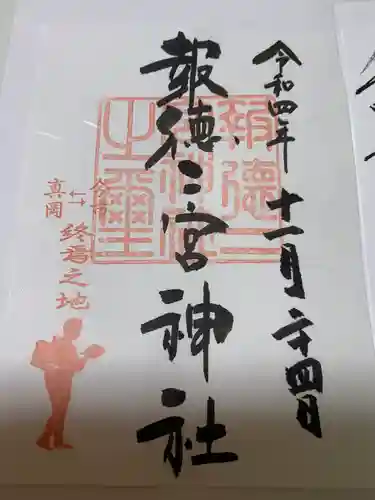 令和四年 十一月 二十四日
報徳二宮神社
報徳二
宮神社
之璽
今市
真岡
終焉之地